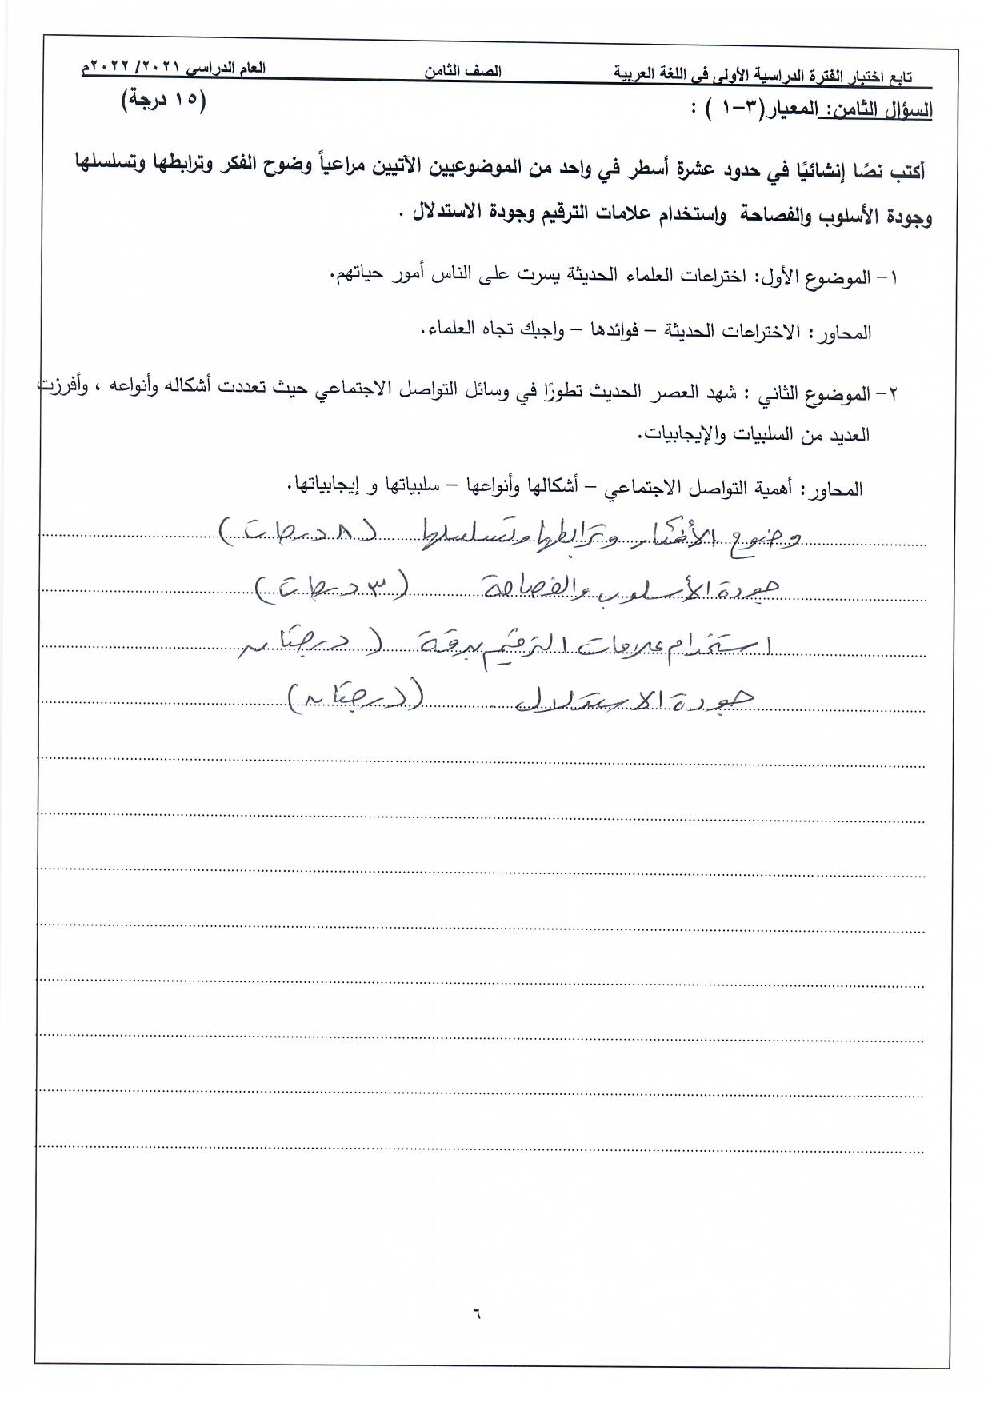 تابع اختبار الفترة الدراسية الأولى في اللغة العربية الصف الثامن العام الدراسي ٢٠٢١/ ٢٠٢٢م
السؤال الثامن: المعيار(٣-١ ) : (١٥ درجة)
أكتب نصًا إنشائيًا في حدود عشرة أسطر في واحد من الموضوعيين الآتيين مراعياً وضوح الفكر وترابطها وتسلسلها
وجودة الأسلوب والفصاحة واستخدام علامات الترقيم وجودة الاستدلال .
١- الموضوع الأول: اختراعات العلماء الحديثة يسرت على الناس أمور حياتهم.
المحاور: الاختراعات الحديثة – فوائدها – واجبك تجاه العلماء.
٢- الموضوع الثاني : شهد العصر الحديث تطورًا في وسائل التواصل الاجتماعي حيث تعددت أشكاله وأنواعه ، وأفرزت
العديد من السلبيات والإيجابيات.
المحاور: أهمية التواصل الاجتماعي – أشكالها وأنواعها – سلبياتها و إيجابياتها.
وضوح الأفكار وترابطها وتسلسلها (٨ درجات)
جودة الأسلوب والفصاحة (٣ درجات)
استخدام علامات الترقيم بدقة (درجتان
جودة الاستدلال (درجتان)
٦